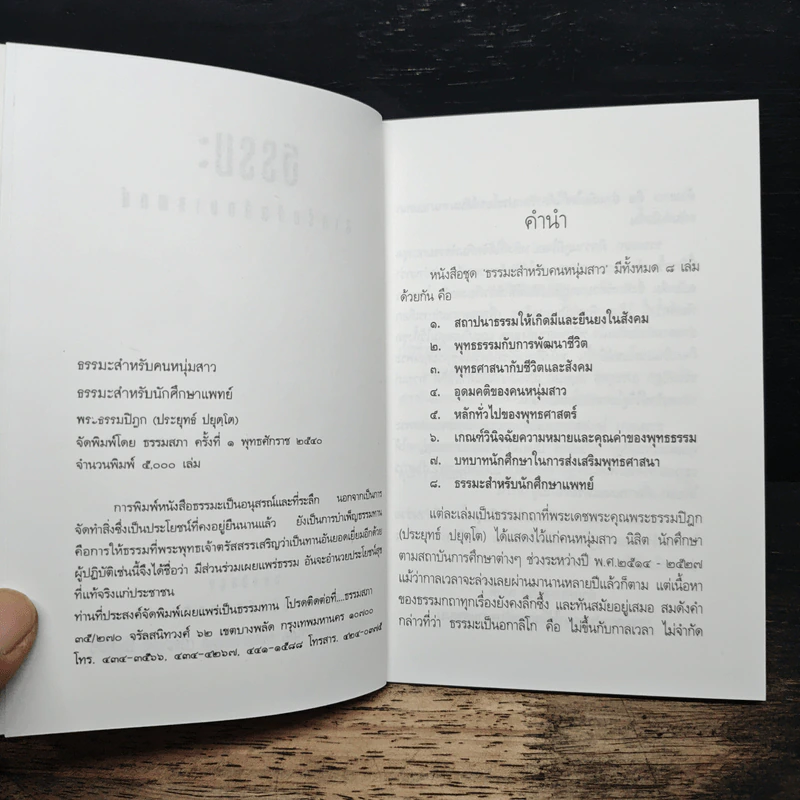 ธรรมะสำหรับคนหนุ่มสาว
ธรรมะสำหรับนักศึกษาแพทย์
พระธรรมปิฎก (ประยุทธ์ ปยุตฺโต)
จัดพิมพ์โดย ธรรมสภา ครั้งที่ ๑ พุทธศักราช ๒๕๔๐
จำนวนพิมพ์ ๕,๐๐๐ เล่ม
การพิมพ์หนังสือธรรมะเป็นอนุสรณ์และที่ระลึก นอกจากเป็นการ
จัดทำสิ่งซึ่งเป็นประโยชน์ที่คงอยู่ยืนนานแล้ว ยังเป็นการบำเพ็ญธรรมทาน
คือการให้ธรรมที่พระพุทธเจ้าตรัสสรรเสริญว่าเป็นทานอันยอดเยี่ยมอีกด้วย
ผู้ปฏิบัติเช่นนี้จึงได้ชื่อว่า มีส่วนร่วมเผยแพร่ธรรม อันจะอำนวยประโยชน์สุข
ที่แท้จริงแก่ประชาชน
ท่านที่ประสงค์จัดพิมพ์เผยแพร่เป็นธรรมทาน โปรดติดต่อที่....ธรรมสภา
๓๕/๒๗๐ จรัลสนิทวงศ์ ๖๒ เขตบางพลัด กรุงเทพมหานคร ๑๐๗๐๐
โทร. ๔๓๔-๓๕๖๖, ๔๓๔-๔๒๖๗, ๔๔๑-๑๕๘๘ โทรสาร. ๔๒๔-๐๓๗๕
คำนำ
หนังสือชุด 'ธรรมะสำหรับคนหนุ่มสาว' มีทั้งหมด ๘ เล่ม
ด้วยกัน คือ
๑. สถาปนาธรรมให้เกิดมีและยืนยงในสังคม
๒. พุทธธรรมกับการพัฒนาชีวิต
๓. พุทธศาสนากับชีวิตและสังคม
๔. อุดมคติของคนหนุ่มสาว
๕. หลักทั่วไปของพุทธศาสตร์
๖. เกณฑ์วินิจฉัยความหมายและคุณค่าของพุทธธรรม
๗. บทบาทนักศึกษาในการส่งเสริมพุทธศาสนา
๘. ธรรมะสำหรับนักศึกษาแพทย์
แต่ละเล่มเป็นธรรมกถาที่พระเดชพระคุณพระธรรมปิฎก
(ประยุทธ์ ปยุตฺโต) ได้แสดงไว้แก่คนหนุ่มสาว นิสิต นักศึกษา
ตามสถาบันการศึกษาต่างๆ ช่วงระหว่างปี พ.ศ.๒๕๑๔ - ๒๕๒๗
แม้ว่ากาลเวลาจะล่วงเลยผ่านมานานหลายปีแล้วก็ตาม แต่เนื้อหา
ของธรรมกถาทุกเรื่องยังคงลึกซึ้ง และทันสมัยอยู่เสมอ สมดังคำ
กล่าวที่ว่า ธรรมะเป็นอกาลิโก คือ ไม่ขึ้นกับกาลเวลา ไม่จำกัด